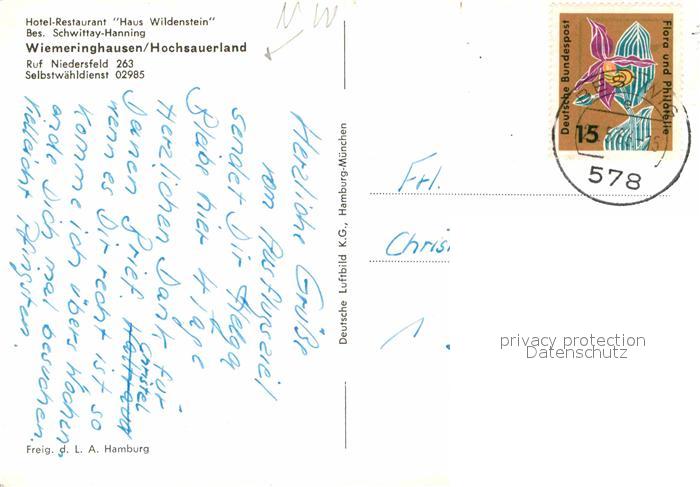 Hotel-Restaurant "Haus Wildenstein"
Bes. Schwittay-Hanning
Wiemeringhausen/Hochsauerland
Ruf Niedersfeld 263
Selbstwähldienst 02985
NW
Herzliche Grüße
vom Ausflugsziel
sendet Dir Helga
Bleibe hier 4 Tage
Herzlichen Dank für
Deinen Brief. Christel
wenn es Dir recht ist so
komme ich übers Wochen
ende Dich mal besuchen.
Vielleicht Pfingsten.
Freig. d. L. A. Hamburg
Deutsche Luftbild K.G., Hamburg-München
Deutsche Bundespost
Flora und Philatelie
15
578
Frl.
Chris
privacy protection
Datenschutz